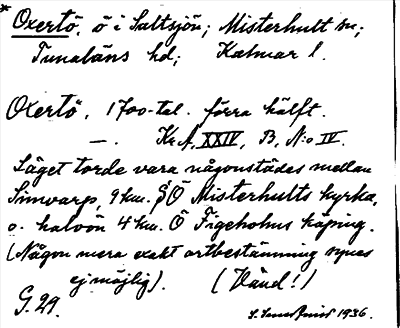 * Oxertö, ö i Saltsjön; Misterhult sn;
Tunaläns hd; Kalmar l.
Oxertö, 1700-tal. förra hälft.
—. Kr.A, XXIV, B, N:o IV.
Läget torde vara någonstädes mellan
Simvarp, 9 km. SÖ Misterhults kyrka,
o. halvön 4 km. Ö Figeholms köping.
(Någon mera exakt ortbestämning synes
ej möjlig). (Vänd!)
G. 29.
1936.